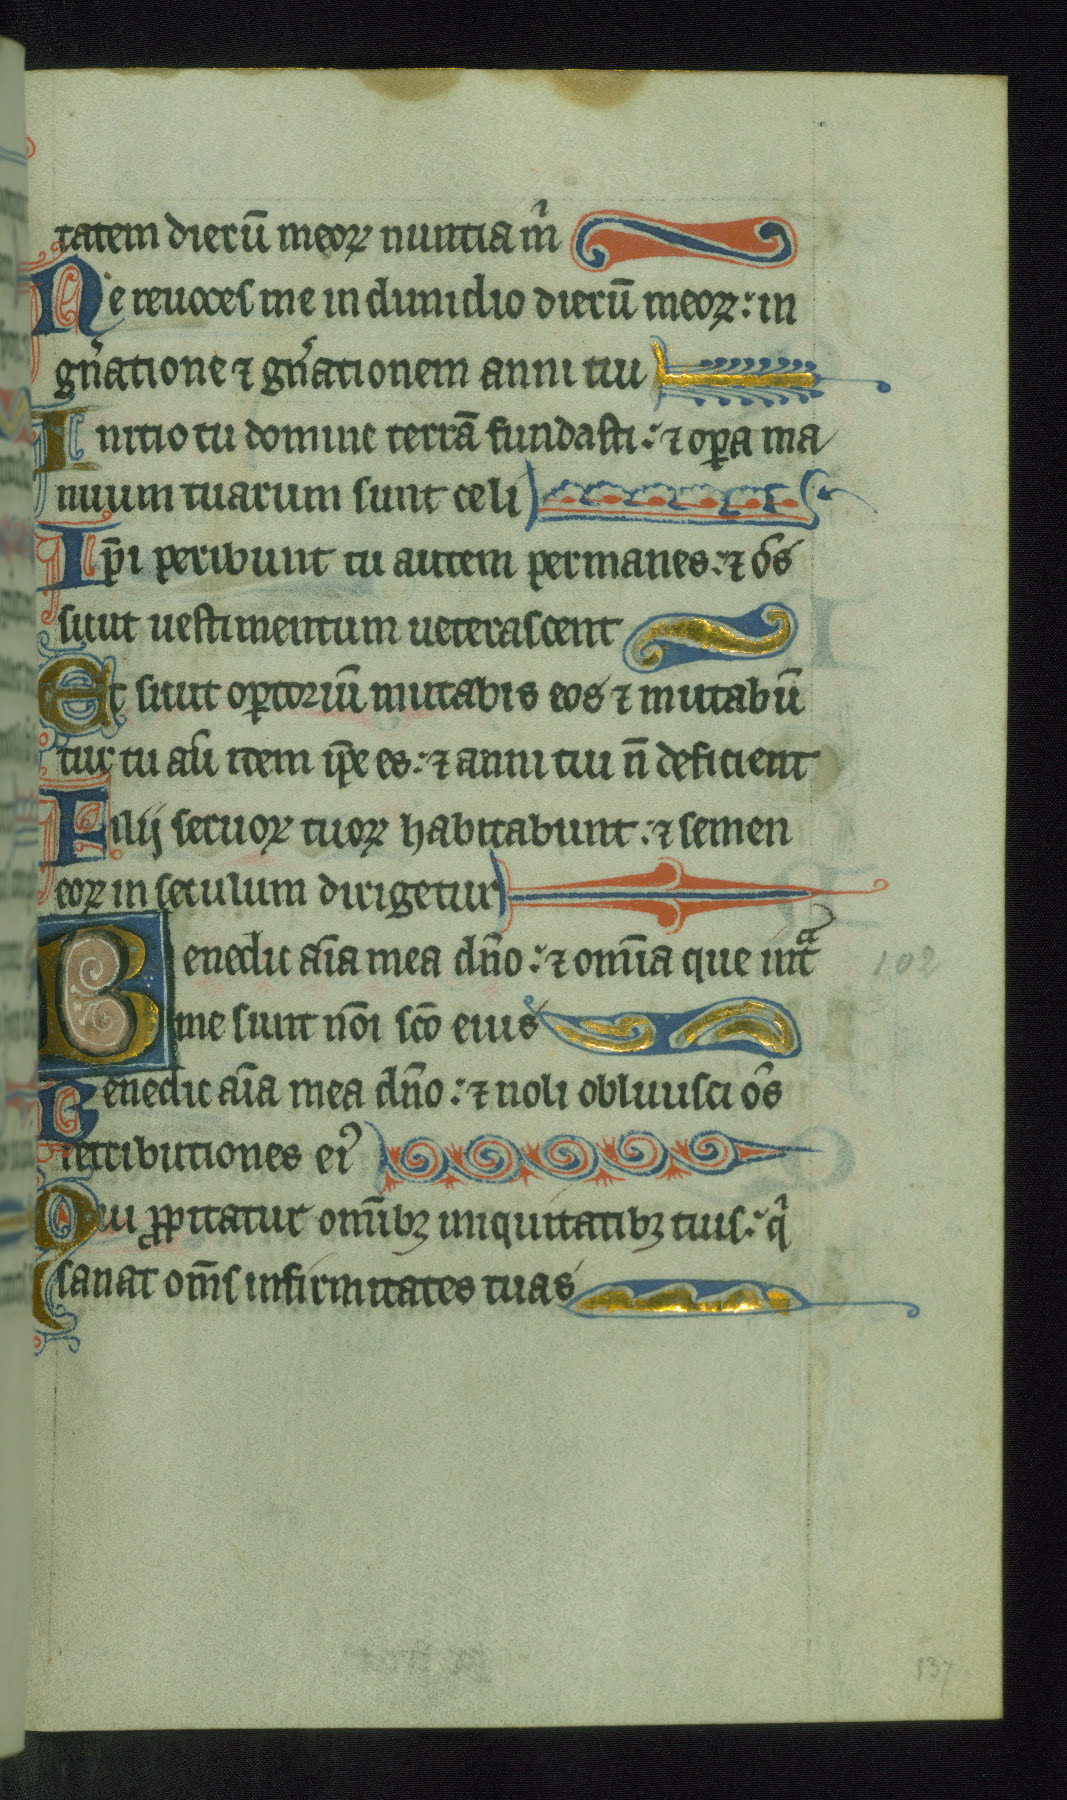 tatem dierū meoꝝ nuntia m̉
Ne reuoces me in dimidio dierū meoꝝ: in
gn̉atione ⁊ gn̉ationem anni tui
Initio tu domine terrā fundasti: ⁊ oꝑa ma
nuum tuarum sunt celi
Ip̄i peribunt tu autem permanes: ⁊ om̄s
sicut uestimentum ueterascent
Et sicut oꝑtoriū mutabis eos ⁊ mutabū
tur tu aū item ip̄e es: ⁊ anni tui n̄ deficient
Filij seruoꝝ tuoꝝ habitabunt: ⁊ semen
eoꝝ in seculum dirigetur
Benedic aīa mea dn̄o: ⁊ om̄ia que intᵃ
me sunt nōi sc̄o eius
Benedic aīa mea dn̄o: ⁊ noli obliuisci om̄s
retributiones eiꝰ
Qui ꝓpitiatur om̄ibꝫ iniquitatibꝫ tuis: qͥ
sanat om̄s infirmitates tuas
102
137